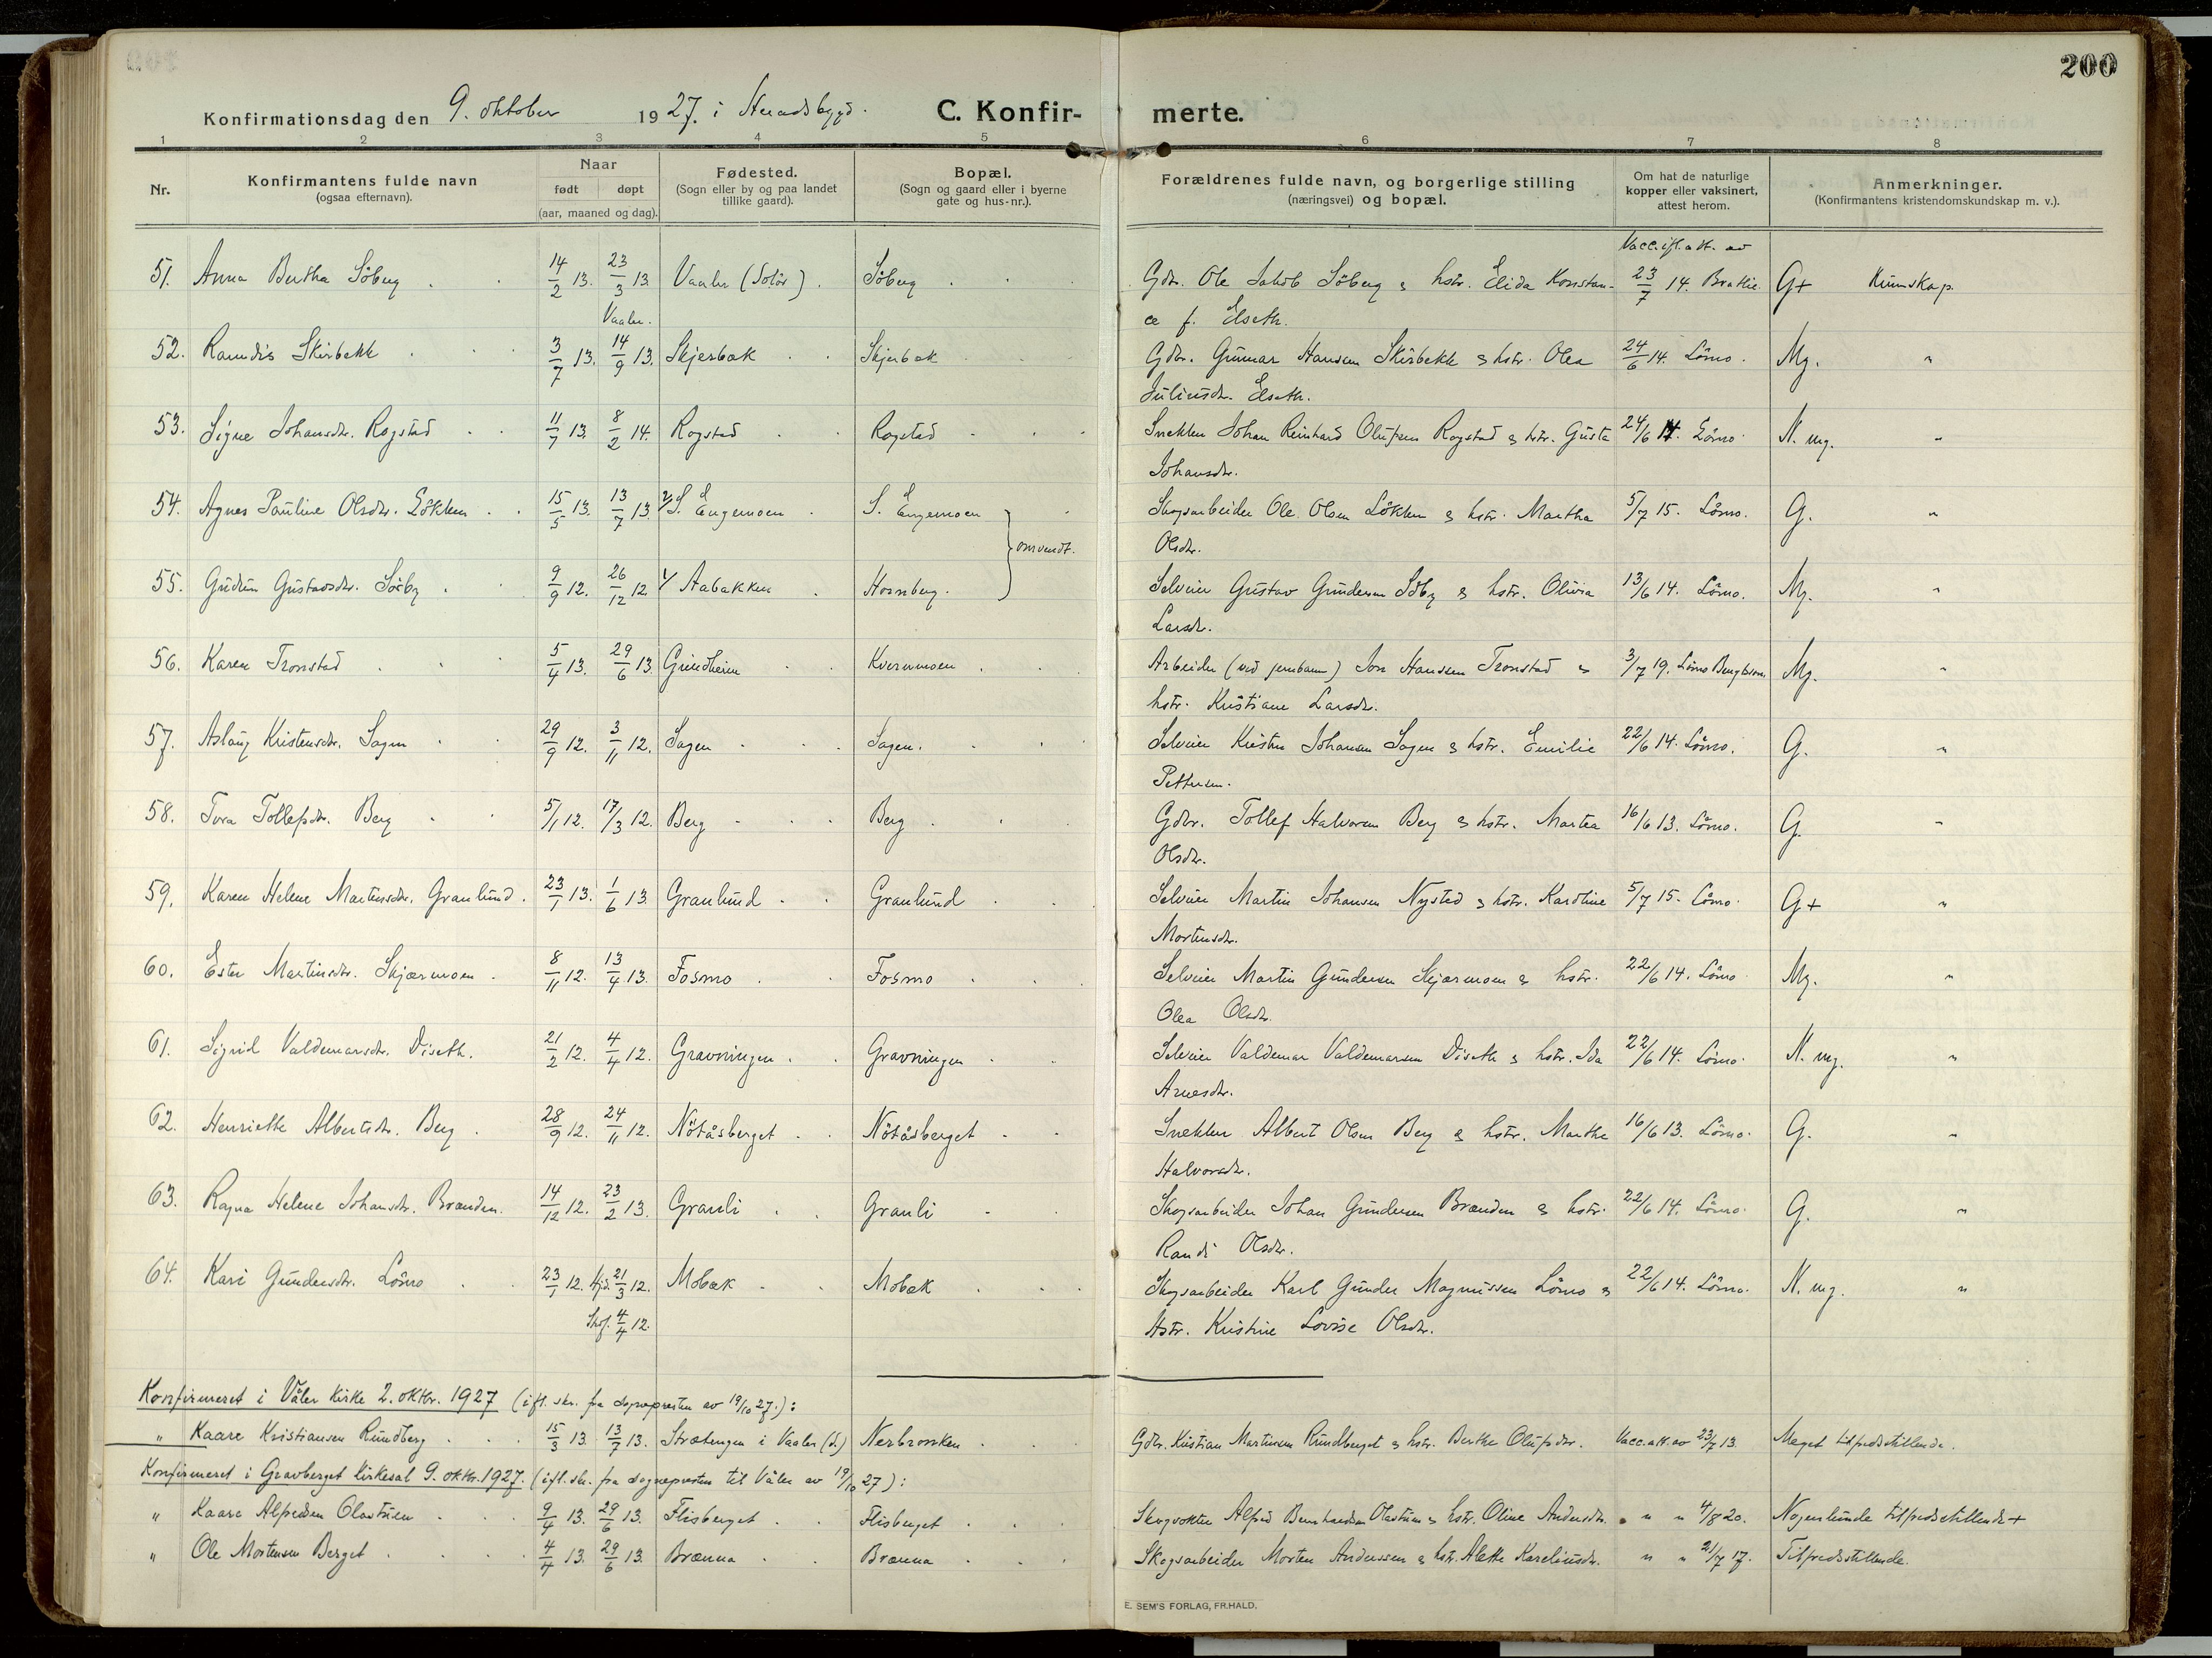 200
Konfirmationsdag den 9. oktober 1927. i Heradsbygd.
C. Konfirmerte.
1 2 3 4 5 6 7 8
Nr. Konfirmantens fulde navn (ogsaa efternavn). Naar født døpt (aar, maaned og dag). Fødested. (Sogn eller by og paa landet tillike gaard). Bopæl. (Sogn og gaard eller i byerne gate og hus-nr.). Forældrenes fulde navn, og borgerlige stilling (næringsvei) og bopæl. Om hat de naturlige kopper eller vaksinert, attest herom. Anmerkninger. (Konfirmantens kristendomskundskap m. v.).
Vacc. ifl. att. av
51. Anna Bertha Söberg 14/2 13. 23/3 13. Vaaler (Solör). Söberg Gdbr. Ole Jakob Söberg & hstr. Elida Konstan- 23/7 14. Brathe. G+ Kunnskap.
Vaaler. ce f. Elseth.
52. Ramdis Skirbekk 3/7 13. 14/9 13. Skjerbæk Skjerbæk Gdbr. Gunnar Hansen Skirbekk & hstr. Olea 24/6 14. Lömo. Mg. "
Juliusdtr. Elseth.
53. Signe Johansdtr. Rogstad 11/9 13. 8/2 14. Rogstad Rogstad Snekker Johan Reinhard Olufsen Rogstad & hstr. Gusta 24/6 14. Lömo. N. mg. "
Johansdtr.
54. Agnes Pauline Olsdtr. Lökken 15/5 13. 13/7 13. S. Engemoen S. Engemoen Skogsarbeider Ole Olsen Lökken & hstr. Martha 5/7 15. Lömo. G. "
omvendt. Olsdtr.
55. Gudrun Gustavsdtr. Sörby 9/9 12. 26/12 12. Aabakken Hornberg. Selveier Gustav Gundersen Söby & hstr. Olivia 13/6 14. Lömo. Mg. "
Larsdtr.
56. Karen Tronstad 5/4 13. 29/6 13. Grindheim Kvernmoen Arbeider (ved jernbanen) Jon Hansen Tronstad & 3/7 19. Lömo Mg. "
hstr. Kristiane Larsdtr.
57. Aslaug Kristensdtr. Sagen 29/9 12. 3/11 12. Sagen Sagen. Selveier Kristen Johansen Sagen & hstr. Emilie 22/6 14. Lömo. G. "
Pettersen.
58. Tora Tollefsdtr. Berg 5/1 12. 17/3 12. Berg Berg Gdbr. Tollef Halvorsen Berg & hstr. Martea 16/6 13. Lömo. G. "
Olsdtr.
59. Karen Helene Martinsdtr. Granlund. 23/1 13. 1/6 13 Granlund Granlund Selveier Martin Johansen Nysted & hstr. Karoline 5/7 15. Lömo. G+ "
Mortensdtr.
60. Ester Martinsdtr. Skjærmoen. 8/11 12. 13/4 13. Fosmo Fosmo Selveier Martin Gundersen Skjærmoen & hstr. 22/6 14. Lömo Mg. "
Olea Olsdtr.
61. Sigrid Valdemarsdtr. Diseth. 21/2 12. 4/4 12. Gravningen Gravningen Selveier Valdemar Valdemarsen Diseth & hstr. Ida 22/6 14. Lömo. N. mg. "
Arnesdtr.
62. Henriette Albertsdtr. Berg 28/9 12. 24/11 12. Nötåsberget Nötåsberget Snekker Albert Olsen Berg & hstr. Marthe 16/6 13. Lömo. G. "
Halvorsdtr.
63. Ragna Helene Johansdtr. Brænden. 14/12 12. 23/2 13. Granli Granli Skogsarbeider Johan Gundersen Brænden & hstr. 22/6 14. Lömo. G. "
Randi Olsdtr.
64. Kari Gundersdtr. Lömo 23/1 12. hjd. 21/3 12. Mobæk Mobæk Skogsarbeider Karl Gunder Magnussen Lömo & 22/6 14. Lömo. N. mg. "
4/4 12. hstr. Kristine Lovise Olsdtr.
Konfirmeret i Våler kirke 2. oktbr. 1927 (ifl. skr. fra sognepresten av 19/10 27.):
" Kaare Kristiansen Rundberg 15/3 13. 13/7 13. Strætengen i Vaaler (S.) Nerbronken Gdbr. Kristian Martinsen Rundberget & hstr. Berthe Olufsdtr. Vacc. att. av 23/7 13. Meget tilfredsstillende.
Konfirmeret i Gravberget kirkesal 9. oktbr. 1927. (ifl. skr. fra sognepresten til Våler av 19/10 27):
" Kaare Alfredsen Olastuen 9/4 13. 29/6 13. Flisberget Flisberget Skogvokter Alfred Bernhardsen Olastuen & hstr. Oline Andersdtr. " " 4/8 20. Nogenlunde tilfredsstillende +
" Ole Mortensen Berget 4/4 13. 29/6 13. Brænna Brænna Skogsarbeider Morten Anderssen & hstr. Alette Kareliusdtr. " " 21/7 17. Tilfredsstillende.
E. SEM'S FORLAG, FR.HALD.